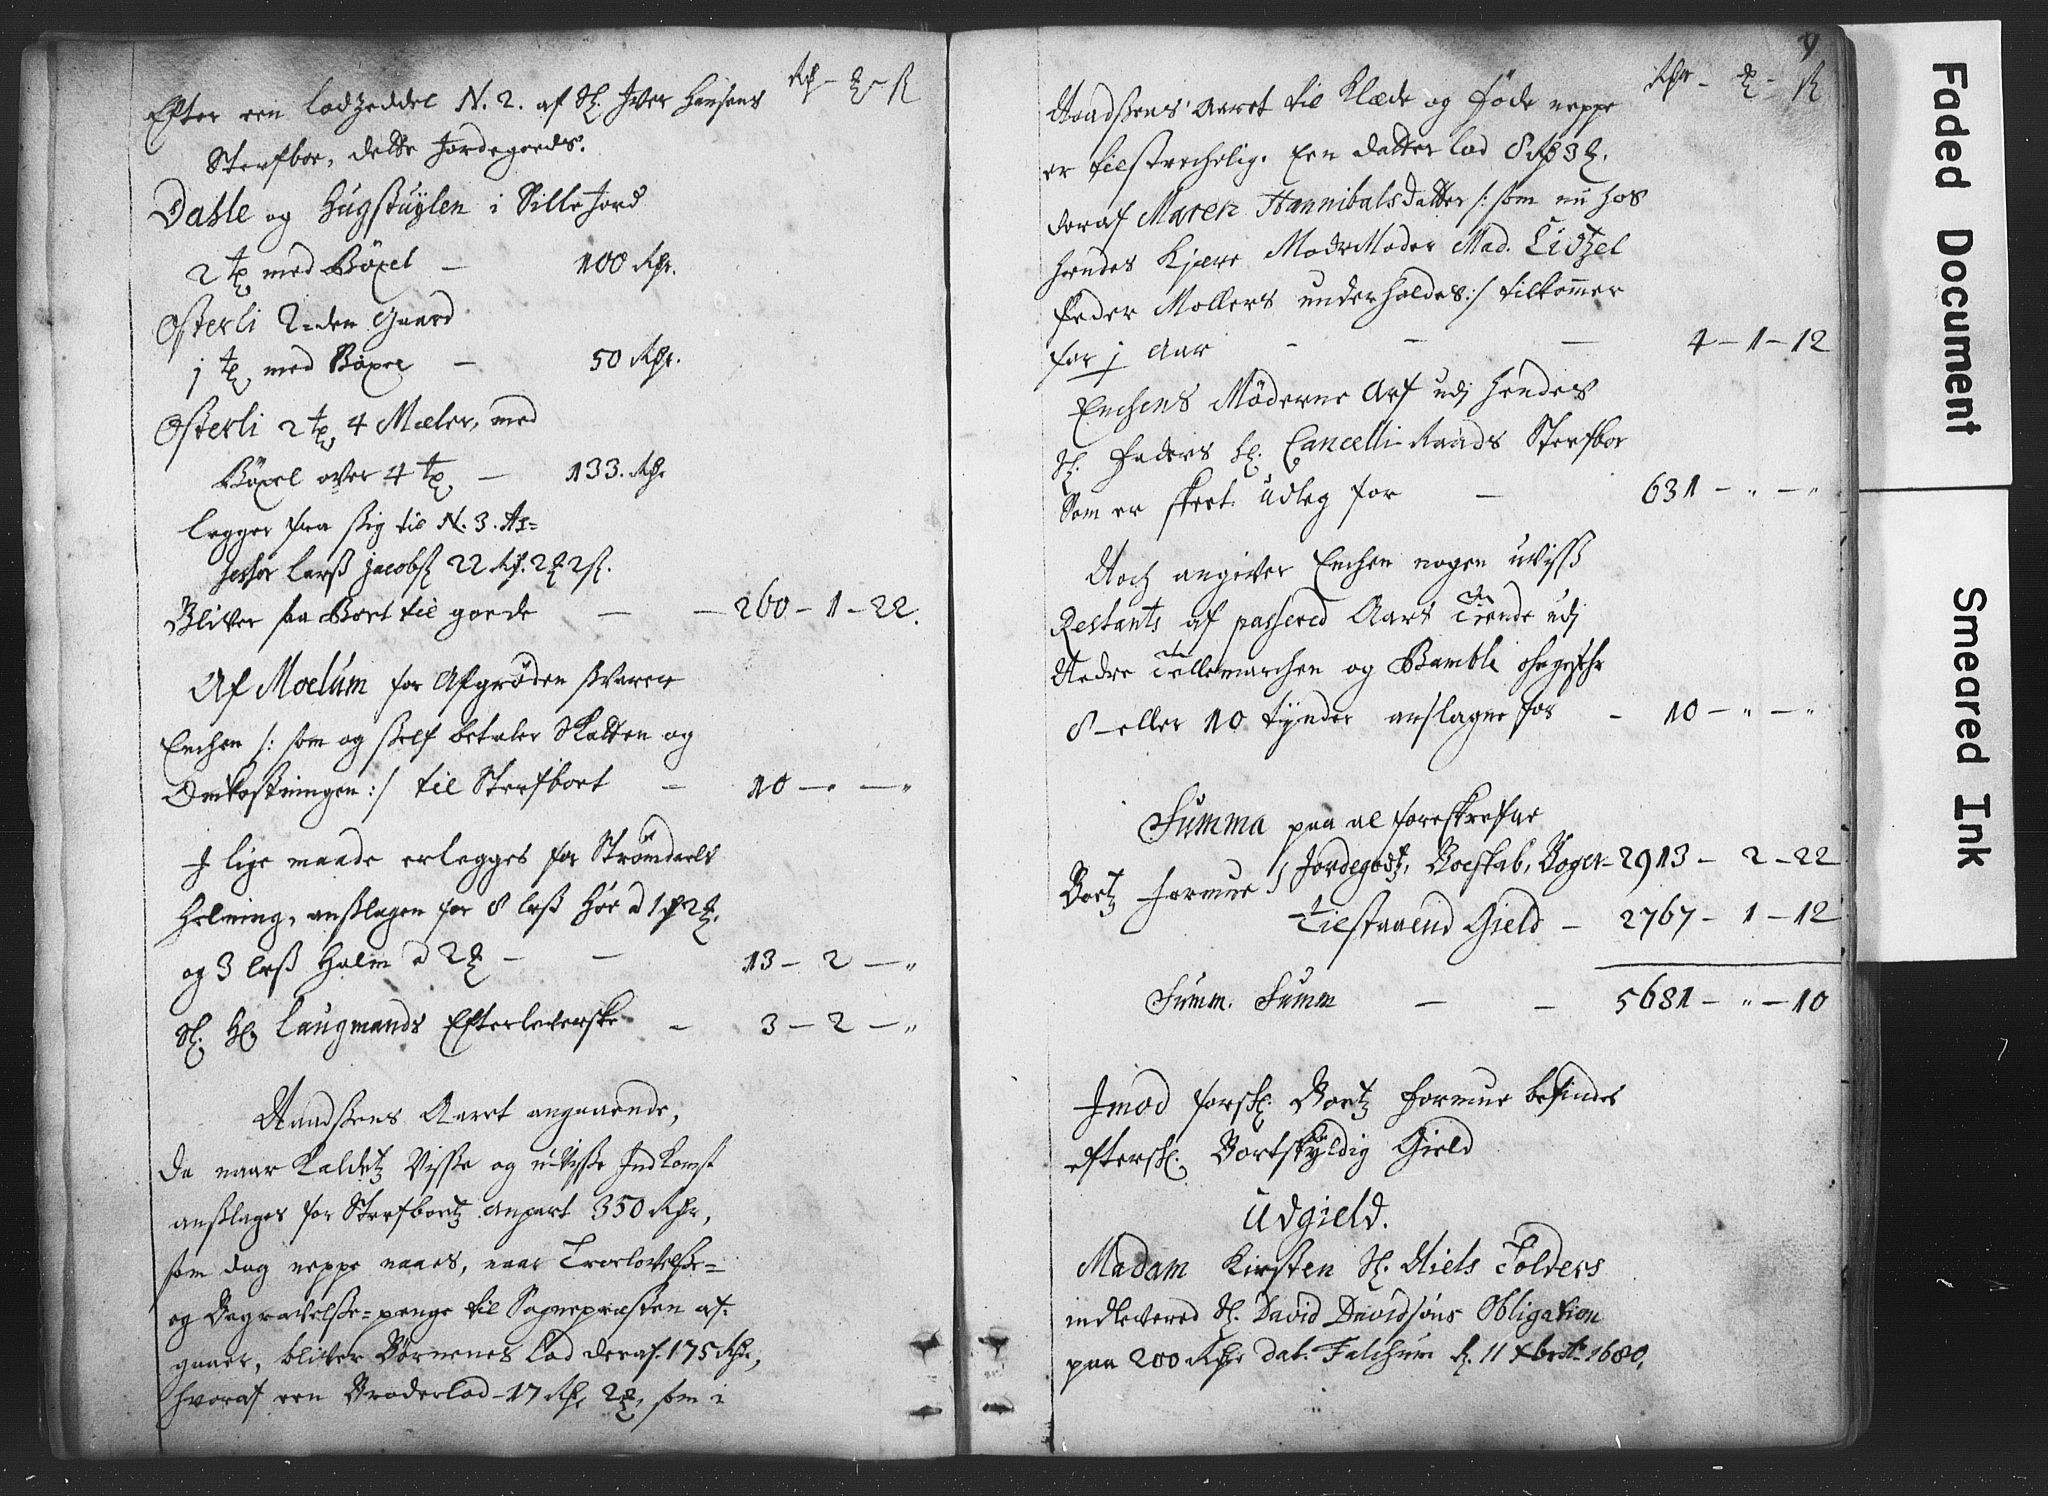 Rdr - ort - s
Efter een lodzeddel N. 2. af Sl. Iver Hansens
Sterfboe, dette Jordegoeds.
Dahle og Hugstuylen i Sillejord
2 tdr med Böxel — 100 Rdr.
Osterli 2=den Gaard
j td. med Böxel — 50 Rdr.
Osterli 2 td. 4 Mæler, med
Böxel over 4 td. — 133. Rdr
legger fra sig til N. 3. As=
sessor Larß Jacobs. 22 Rdr. 2 ort 2 s.
Bliver saa Boet til goede — — 260 - 1 - 22.
Af Moelum for Afgröden svarer
Enchen /: som og self betaler Skatten og
Omkostningen :/ til Sterfboet — 10 — " — "
J lige maade erlegges for Strömdaels
Helning, anslagen for 8 leß Höe a 1 rdr 2 ort.
og 3 leß Halm a 2 ort — — 13 — 2 — "
Sl. Hr. Laugmands Efterleverske — 3 — 2 — "
Naadsens Aaret angaaende,
da naar Kaldetz Visse og u-visse Indkomst
anslages for Sterfboetz anpart 350 Rdr,
som dog neppe naaes, naar Troelovelse=
og Begravelse=penge til Sognepræsten af=
gaaer, bliver Börnenes Lod deraf 175 Rdr,
hvoraf een Broderlod 17 Rdr 2 ort, som i
9
Rdr - ort - s
Naadsens Aaret til Klæde og föde neppe
er tilstrechelig. Een datter lod 8 Rdr 3 ort.
deraf Maren Hannibals datter /: som nu hos
hendes Kjære ModerModer Mad. Lidzel
Peder Mollers underholdes :/ tilkommer
for j Aar — — — 4 — 1 — 12
Enchens Möderne Arf udj hendes
Sl. Faders Sl. Cancelli-Raads Sterfboe
Som er skeet udleg for — 631 — " — "
Noch angiver Enchen nogen uviss
Restants af passered Aars Tiende udj
Nedre Tellemarchen og Bamble ohngefehr
8 eller 10 tynder anslagne for — 10 — " — "
Summa paa al foreskrefne
Boetz formue Jordegodtz, Boeskab, Boger - 2913 - 2 - 22
Tilstaaend Gield — 2767 - 1 - 12
Summ. Summ — — 5681 — " — 10
Jmod forskr. Boetz formue befindes
efterskr. Bortskyldig Gield
Udgield.
Madam Kirsten Sl. Niels Tolders
indlevered Sl. David Davidsöns Obligation
paa 200 Rdr dat. Falchum d. 11 Xbris 1680,
Faded Document
Smeared Ink